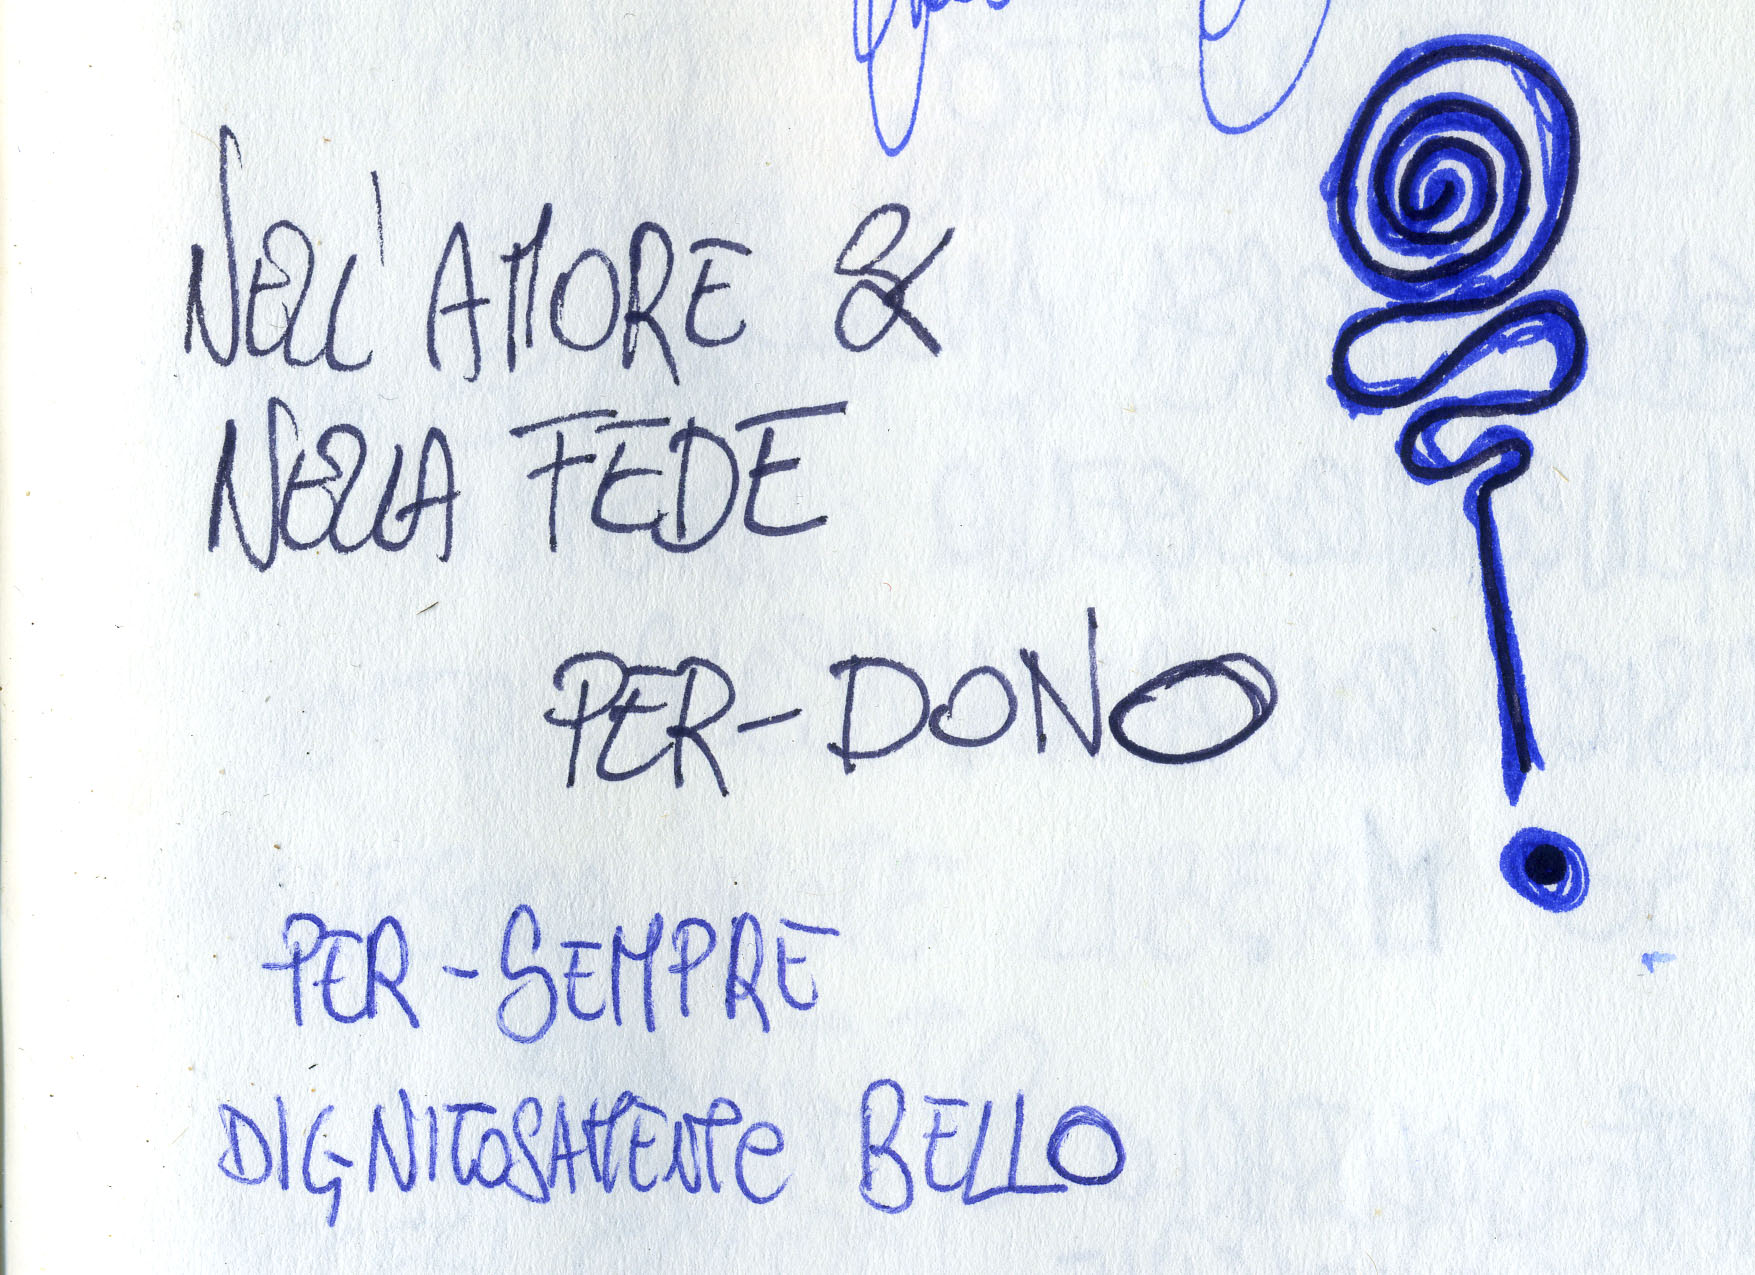 NELL'AMORE &
NELLA FEDE
PER-DONO
PER-SEMPRE
DIGNITOSAMENTE BELLO